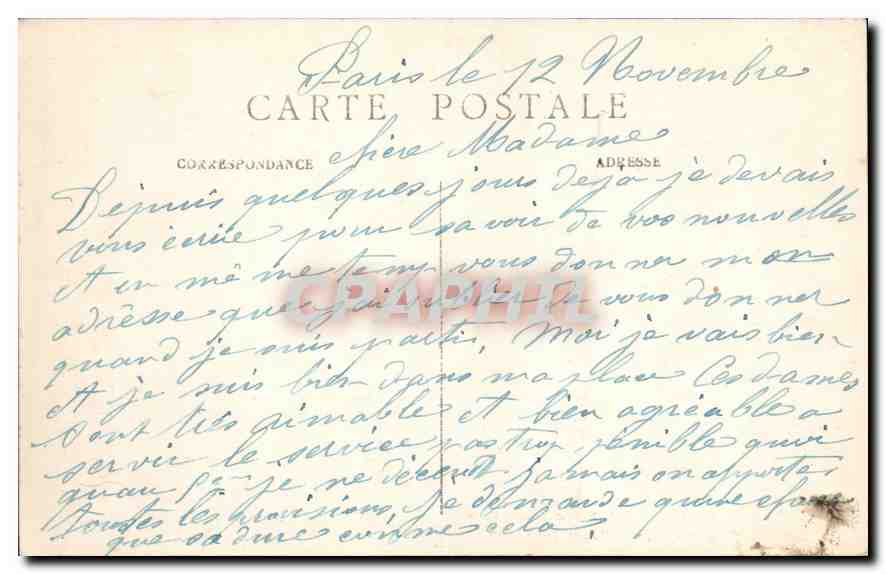 Paris le 12 Novembre
CARTE POSTALE
CORRESPONDANCE
ADRESSE
chère Madame
Dépuis quelques jours deja je devais
vous écrire pour savoir de vos nouvelles
et en même temp vous donner mon
adrèsse que j'ai oublier de vous donner
quand je suis partie, Moi je vais bien
et je suis bien dans ma place Ces dames
sont très aimable et bien agréable a
servir le service pas trop pénible
je ne décend jamais on apporte
toutes les provisions, je demande qu'une chose
que sa dure comme cela.
CPAPHIL